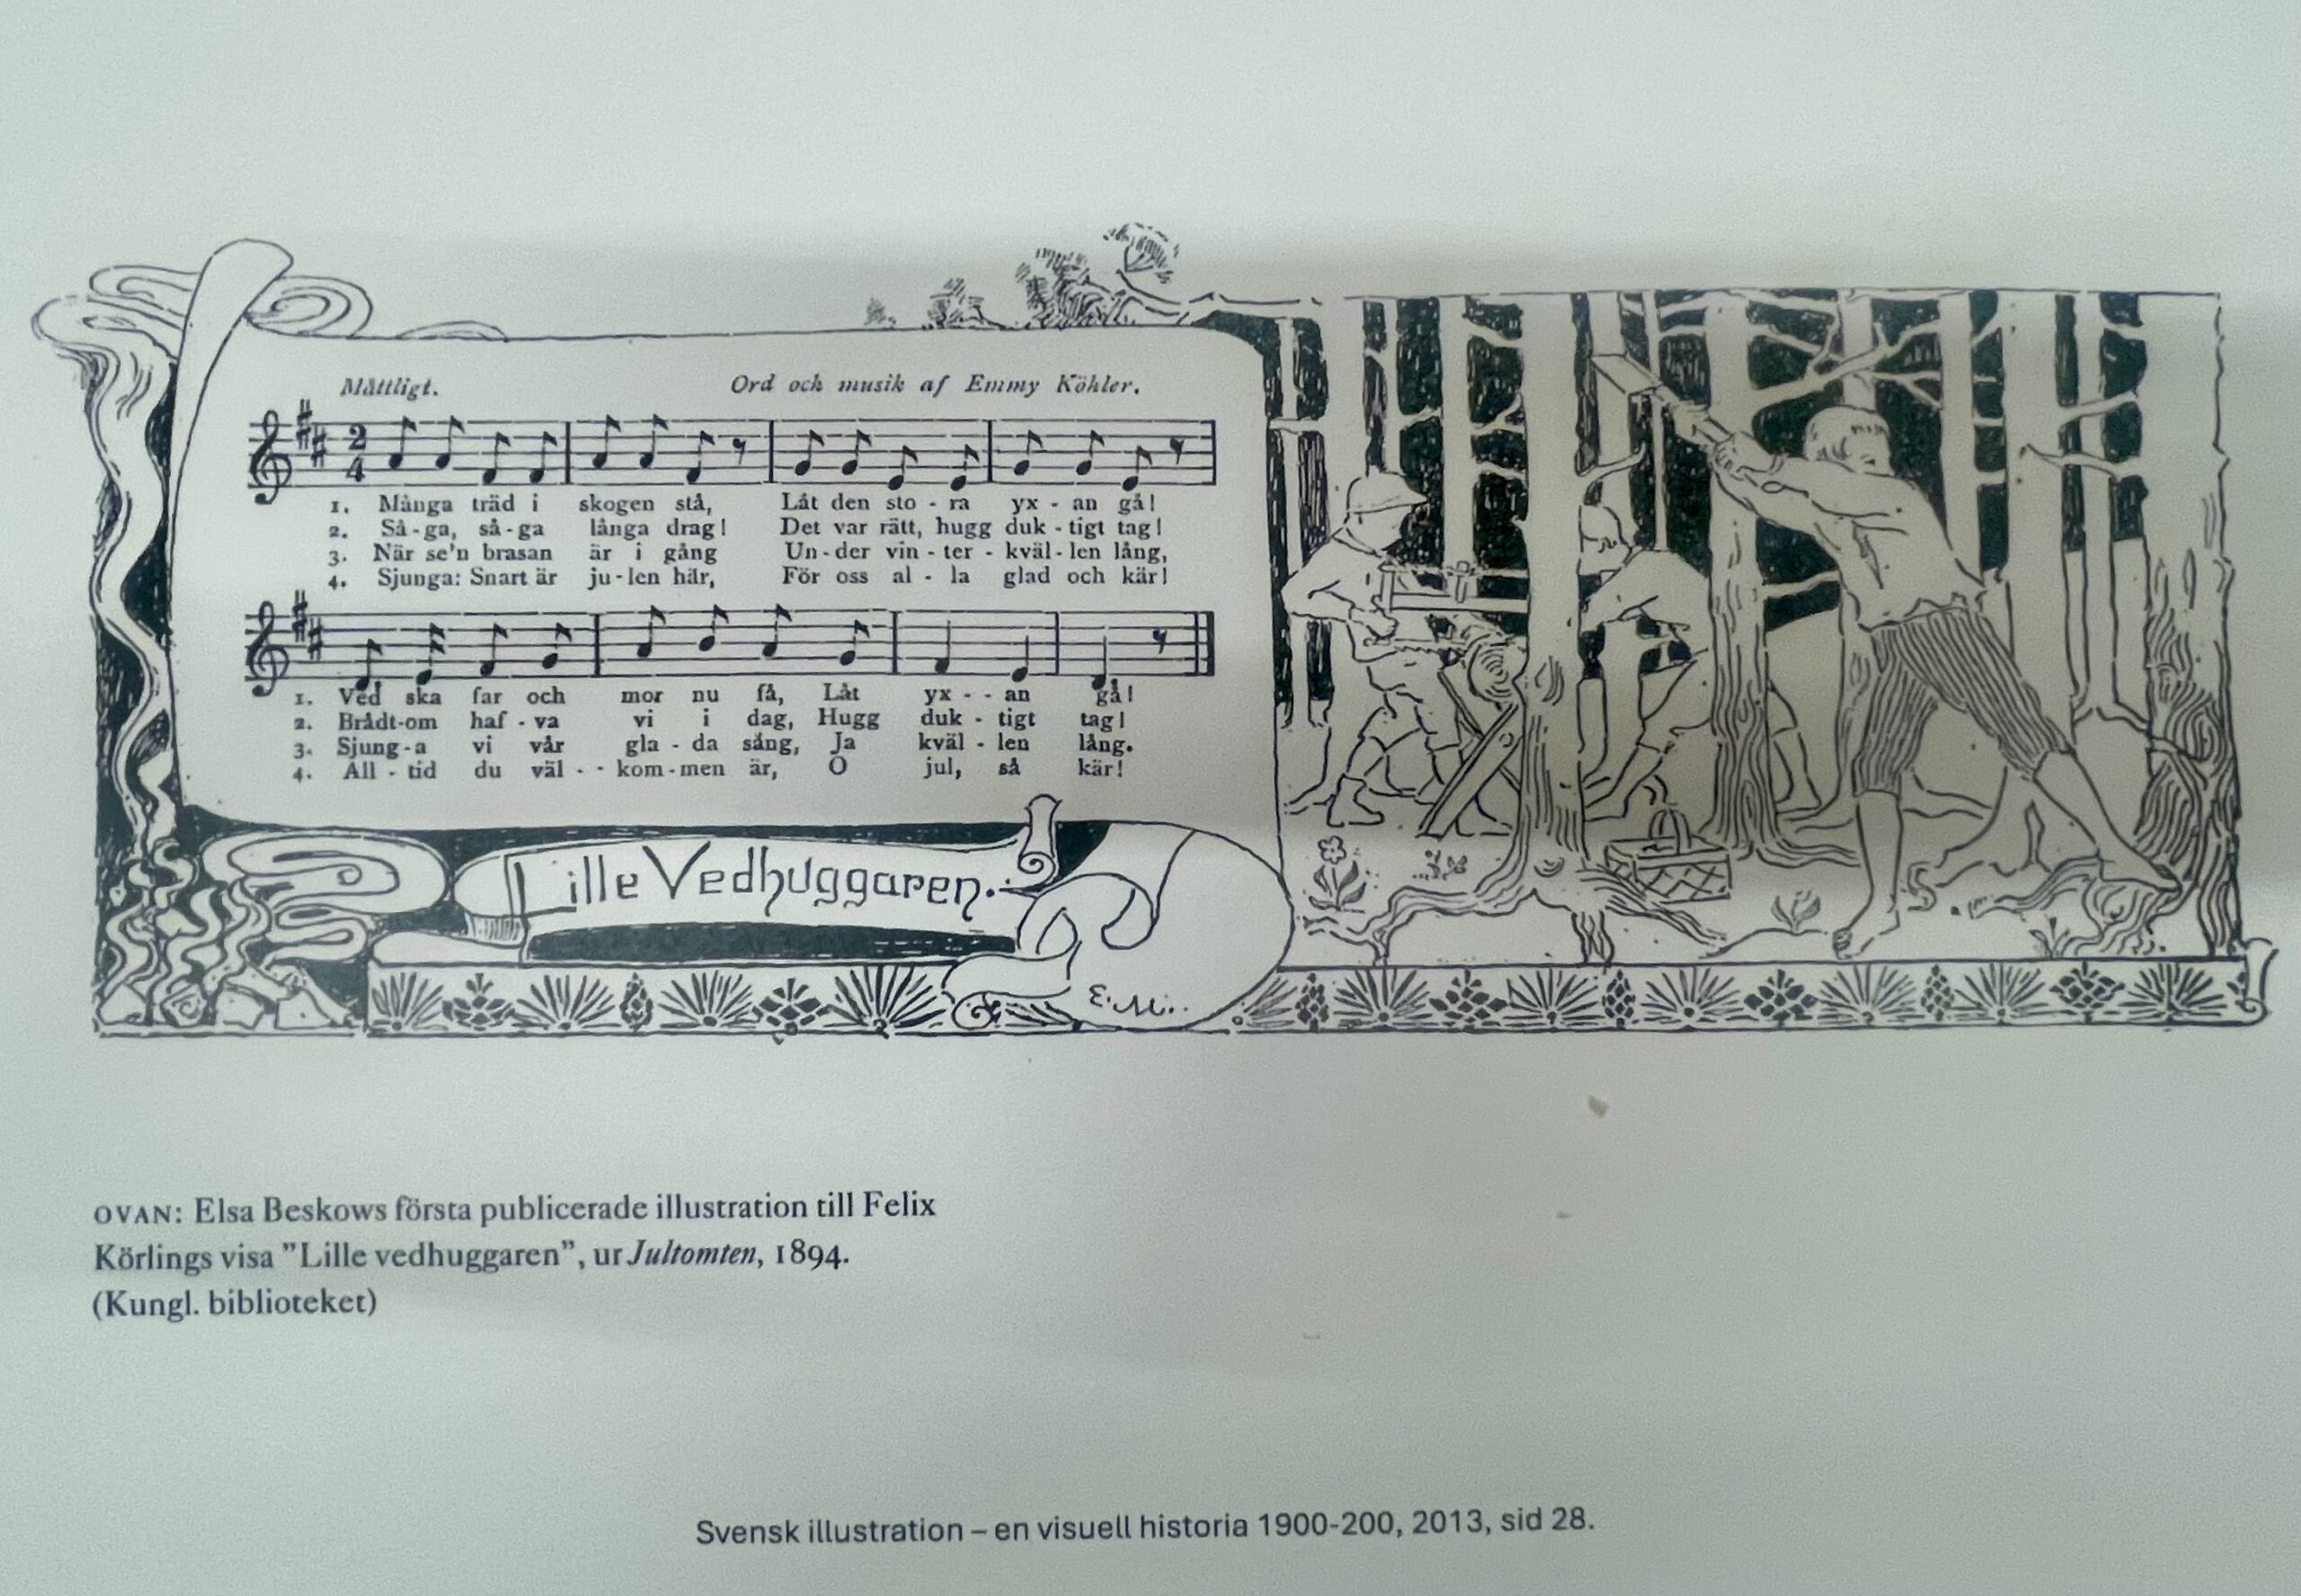 Måttligt. Ord och musik af Emmy Köhler.
2
4
1. Många träd i skogen stå, Låt den sto - ra yx - an gå!
2. Så - ga, så - ga långa drag! Det var rätt, hugg duk - tigt tag!
3. När se'n brasan är i gång Un - der vin - ter - kväl - len lång,
4. Sjunga: Snart är ju - len här, För oss al - la glad och kär!
1. Ved ska far och mor nu få, Låt yx - - an gå!
2. Brådt-om haf - va vi i dag, Hugg duk - tigt tag!
3. Sjung - a vi vår gla - da sång, Ja kväl - len lång.
4. All - tid du väl - - kom - men är, O jul, så kär!
Lille Vedhuggaren.
E. M..
OVAN: Elsa Beskows första publicerade illustration till Felix
Körlings visa ”Lille vedhuggaren”, ur Jultomten, 1894.
(Kungl. biblioteket)
Svensk illustration – en visuell historia 1900-200, 2013, sid 28.